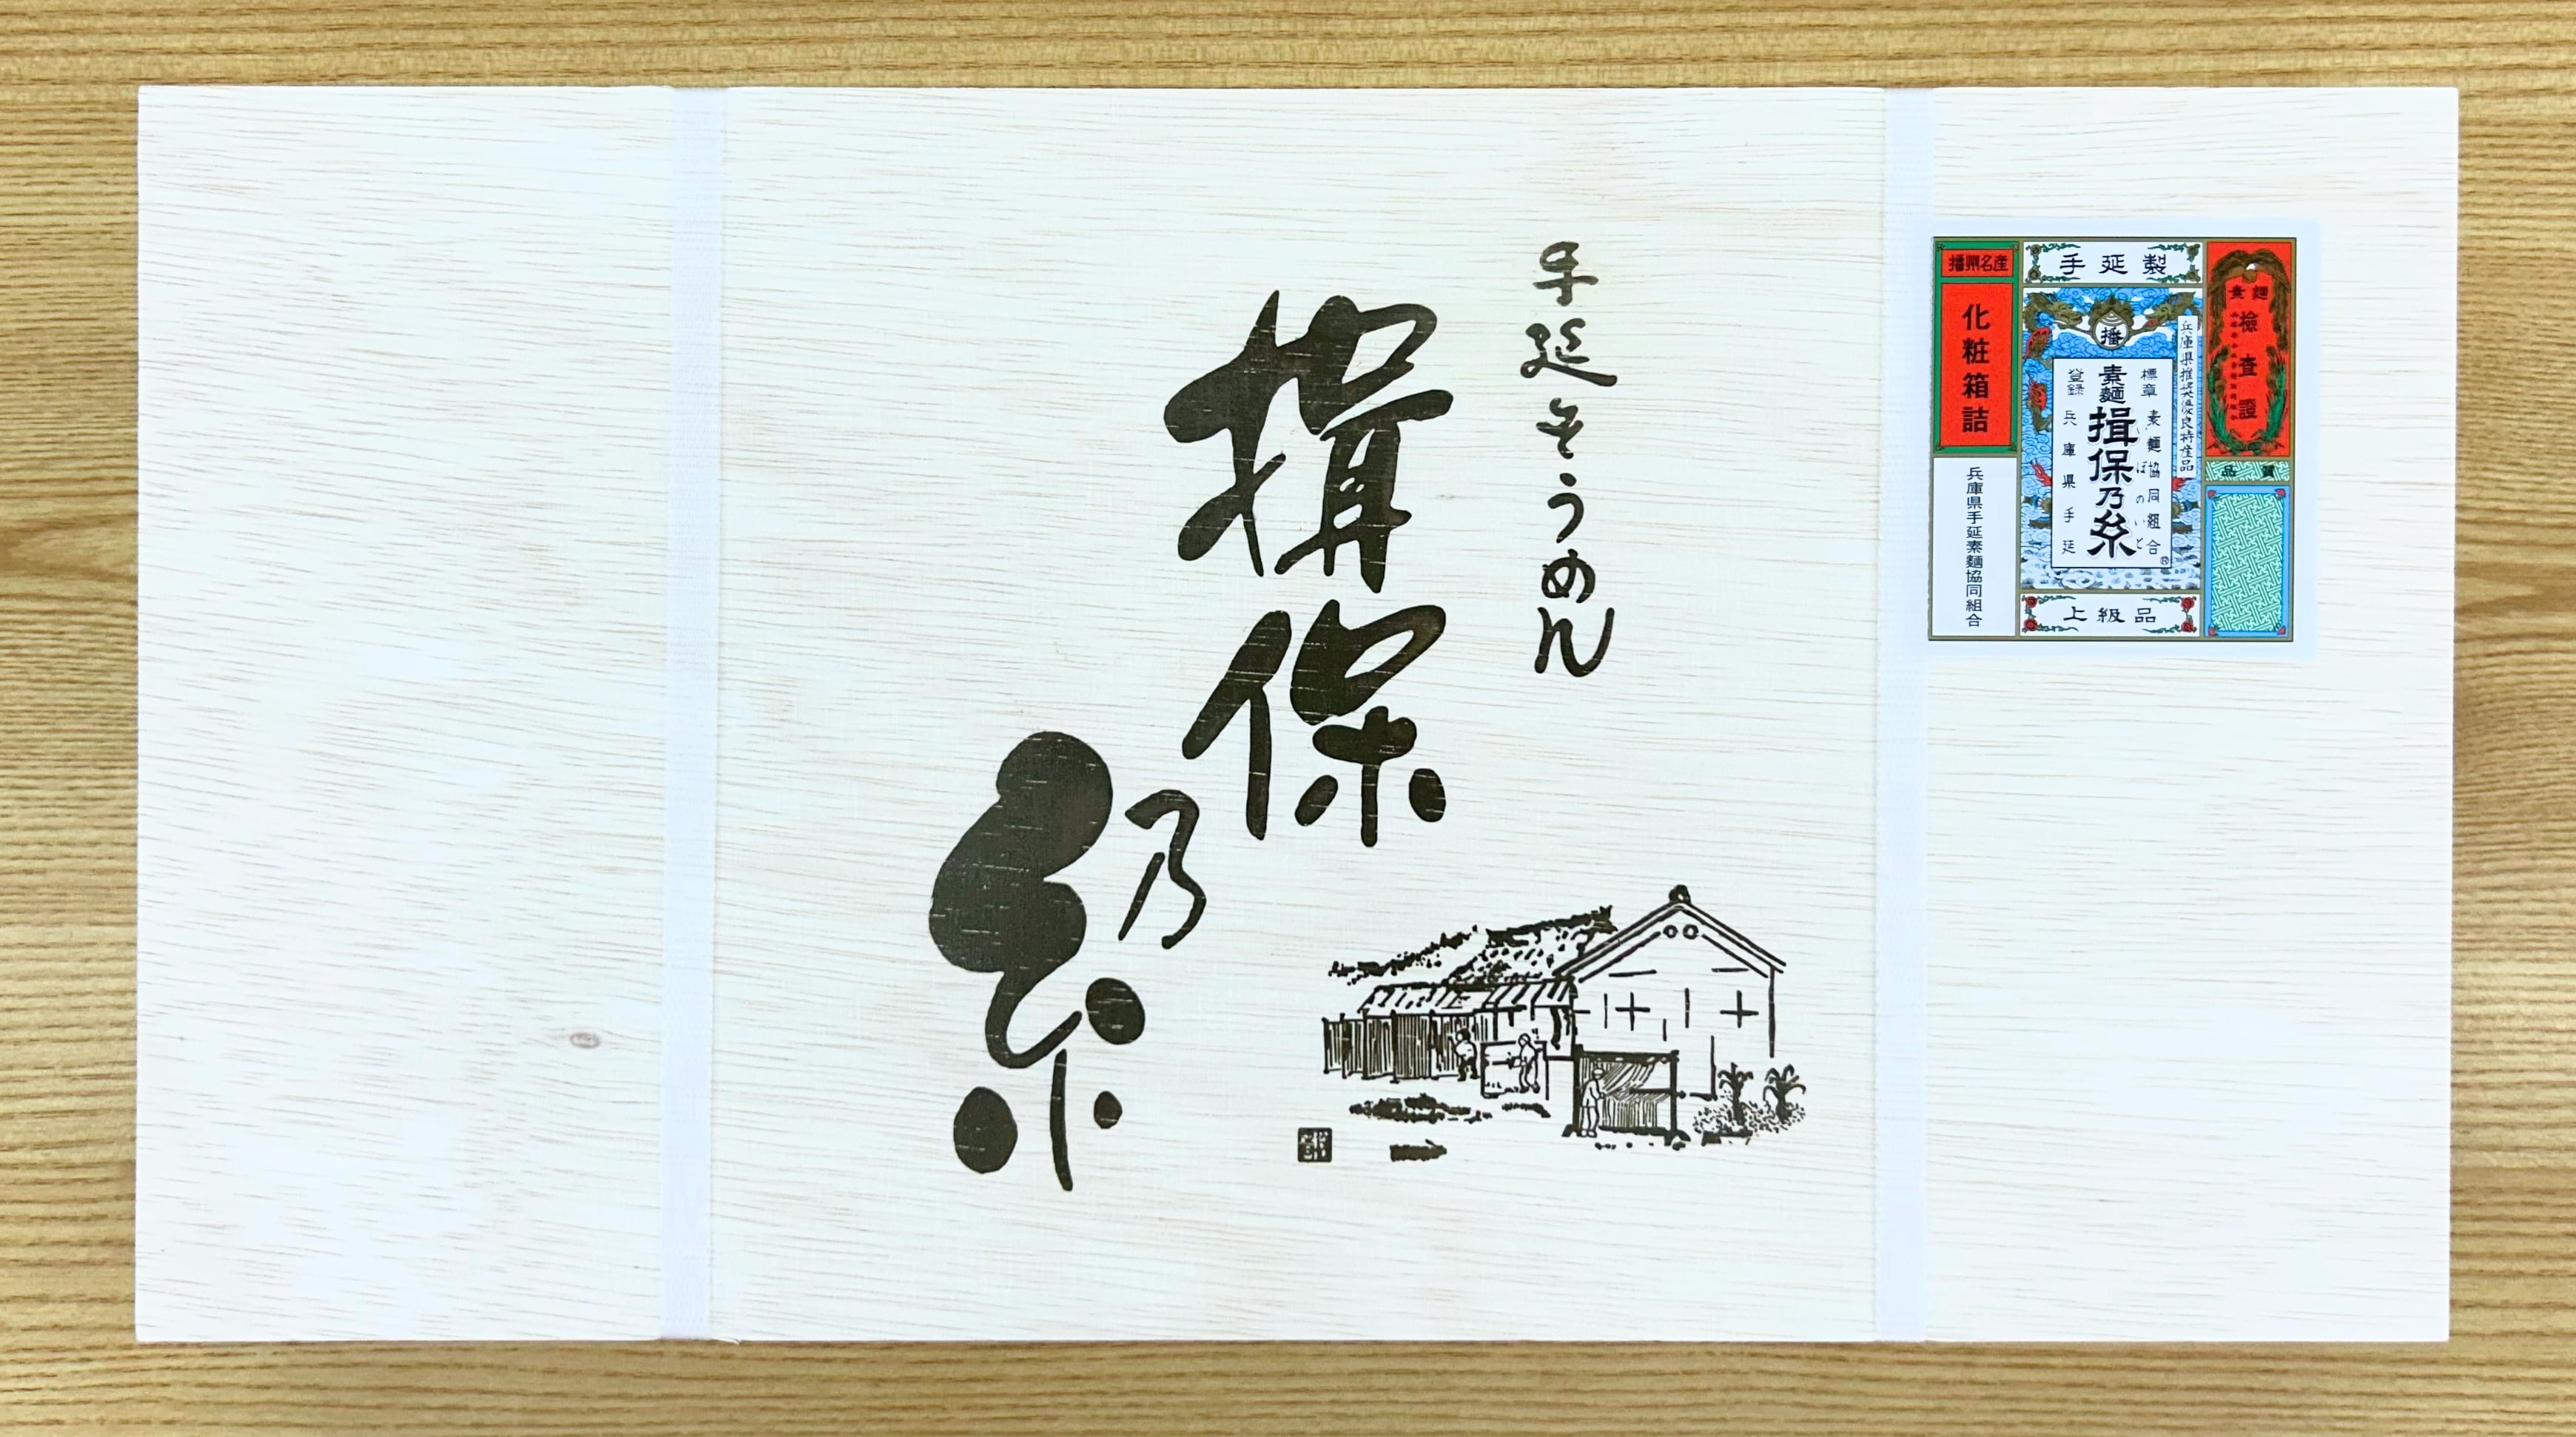 手延そうめん
揖保乃糸
播州名産
化粧箱詰
兵庫県手延素麺協同組合
手延製
播
兵庫県推奨優良特産品
標章
素麺協同組合
いぼのいと
素麺
揖保乃糸
登録
兵庫県手延
上級品
素麺
検査證
品質